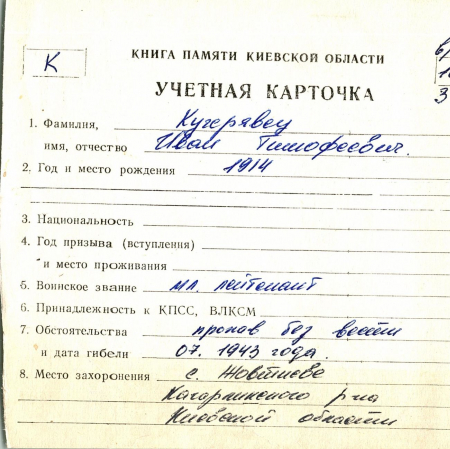 К
КНИГА ПАМЯТИ КИЕВСКОЙ ОБЛАСТИ
УЧЕТНАЯ КАРТОЧКА
1. Фамилия, Кучерявец
имя, отчество Иван Тимофеевич.
2. Год и место рождения 1914
3. Национальность
4. Год призыва (вступления)
и место проживания
5. Воинское звание мл. лейтенант
6. Принадлежность к КПСС, ВЛКСМ
7. Обстоятельства пропав без вести
и дата гибели 07. 1943 года.
8. Место захоронения с. Жовтнево
Кагарлыкского р-на
Киевской области